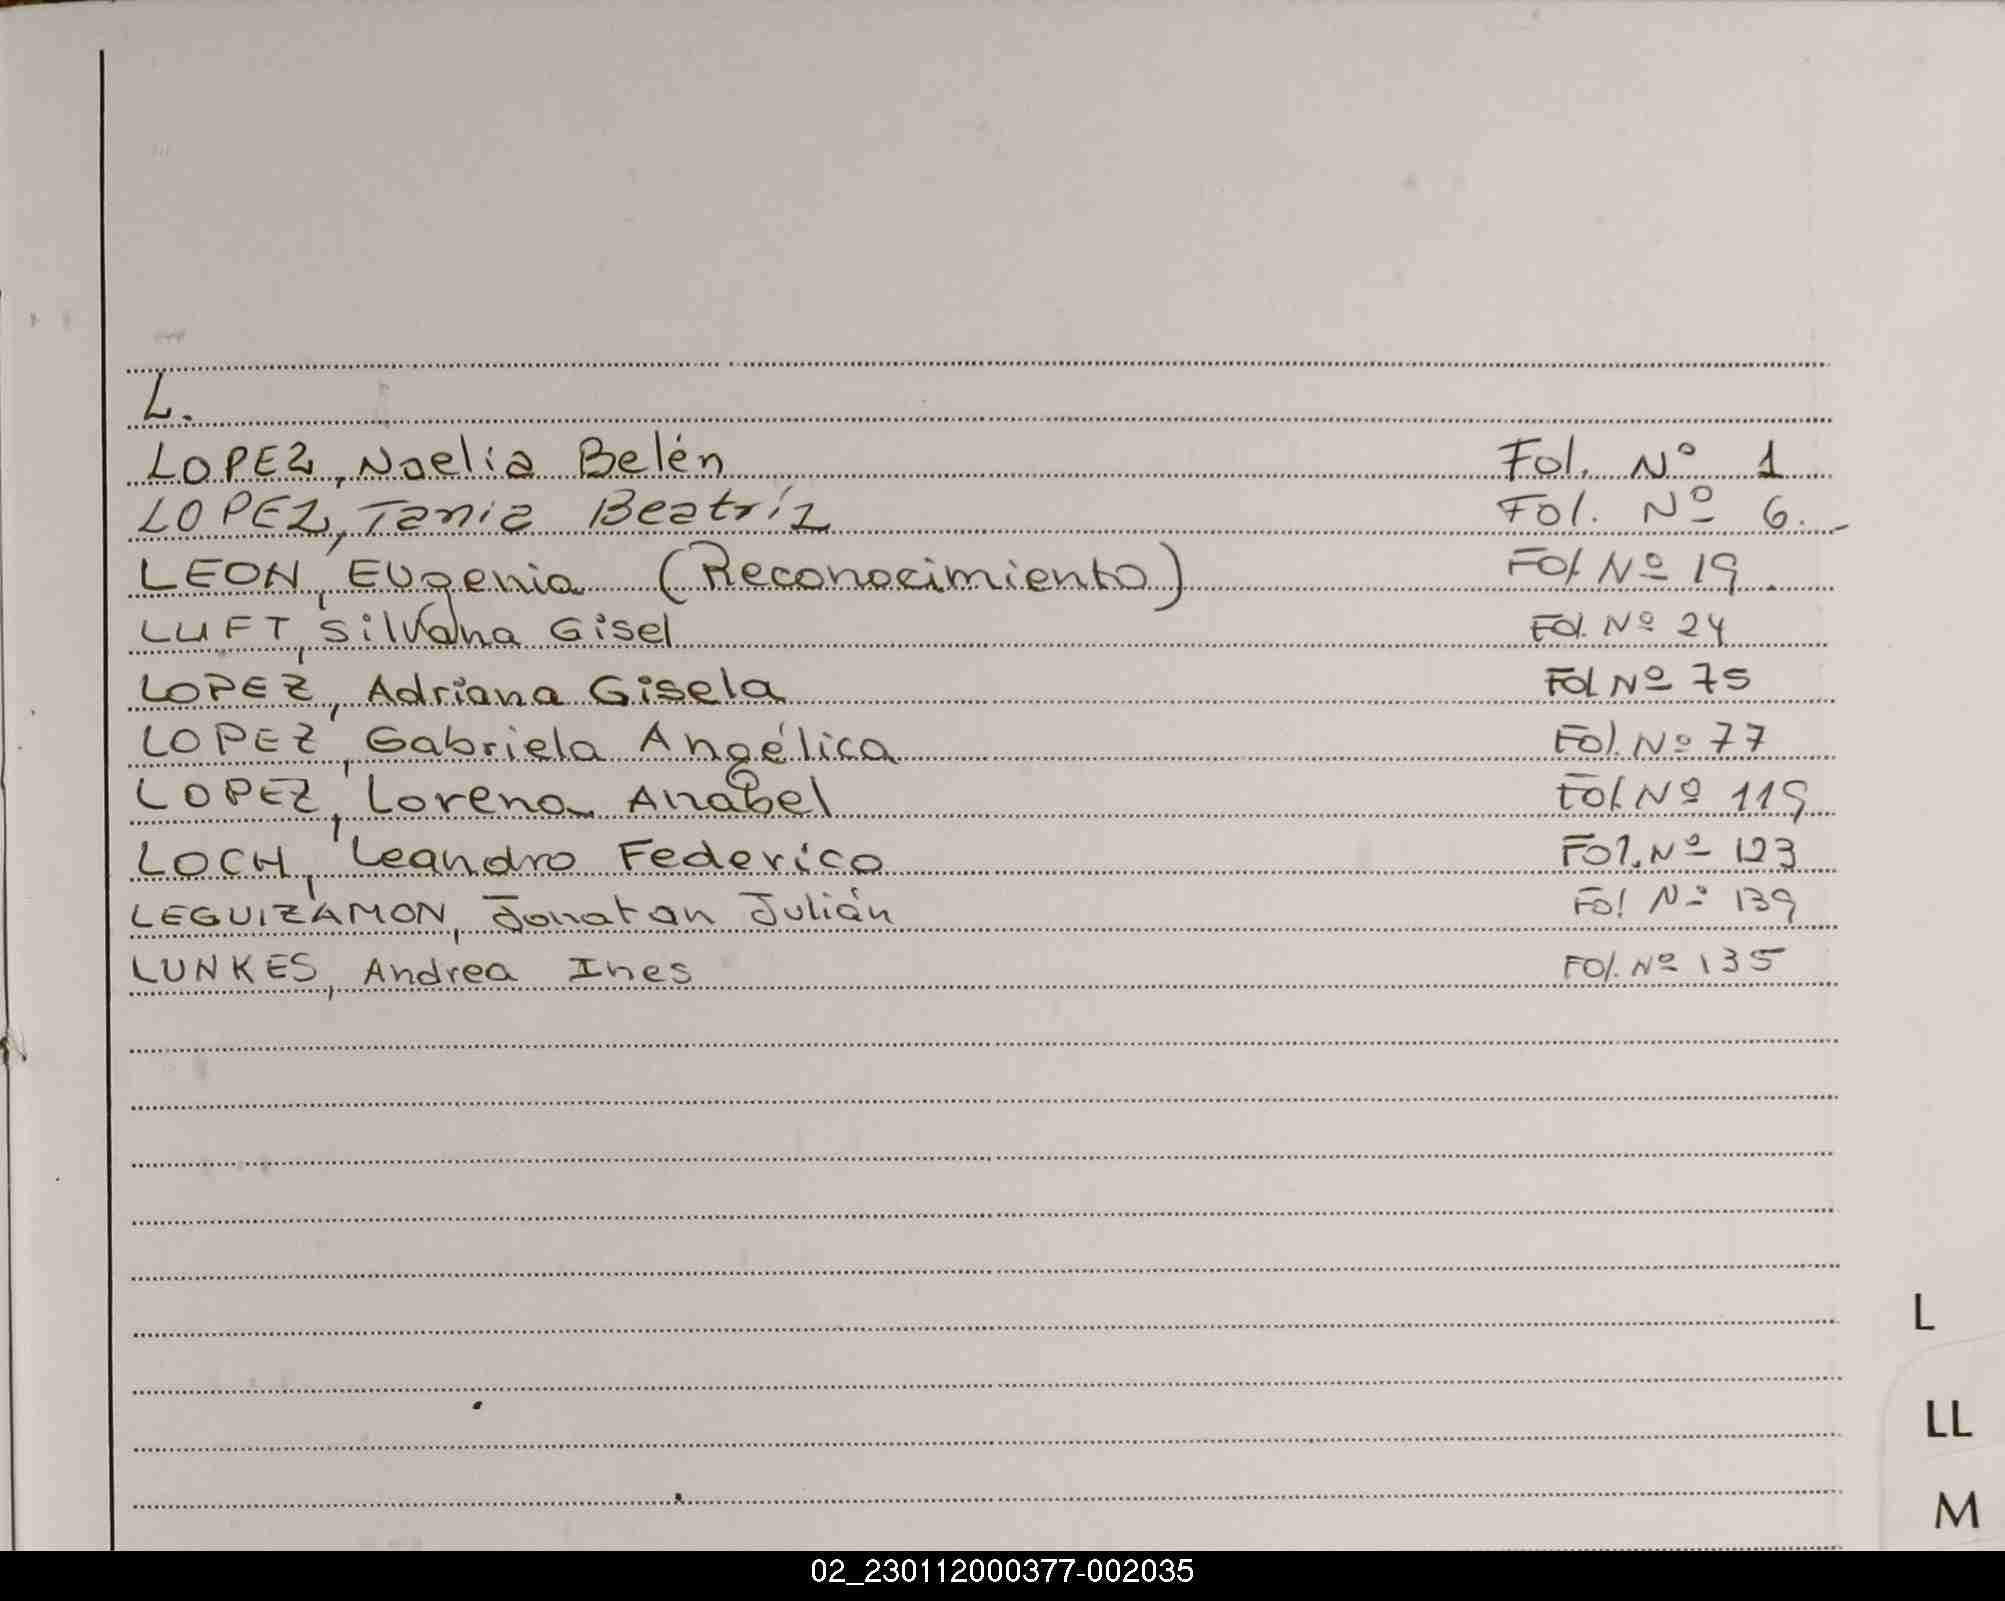 L.
LOPEZ, Noelia Belén Fol. Nº 1
LOPEZ, Tania Beatríz Fol. Nº 6.-
LEON, Eugenia (Reconocimiento) Fol Nº 19
LUFT, Silvana Gisel Fol. Nº 24
LOPEZ, Adriana Gisela Fol Nº 75
LOPEZ, Gabriela Angélica Fol. Nº 77
LOPEZ, Lorena Anabel Fol. Nº 119
LOCH, Leandro Federico Fol. Nº 123
LEGUIZAMON, Jonatan Julián Fol Nº 139
LUNKES, Andrea Ines Fol. Nº 135
L
LL
M
02_230112000377-002035